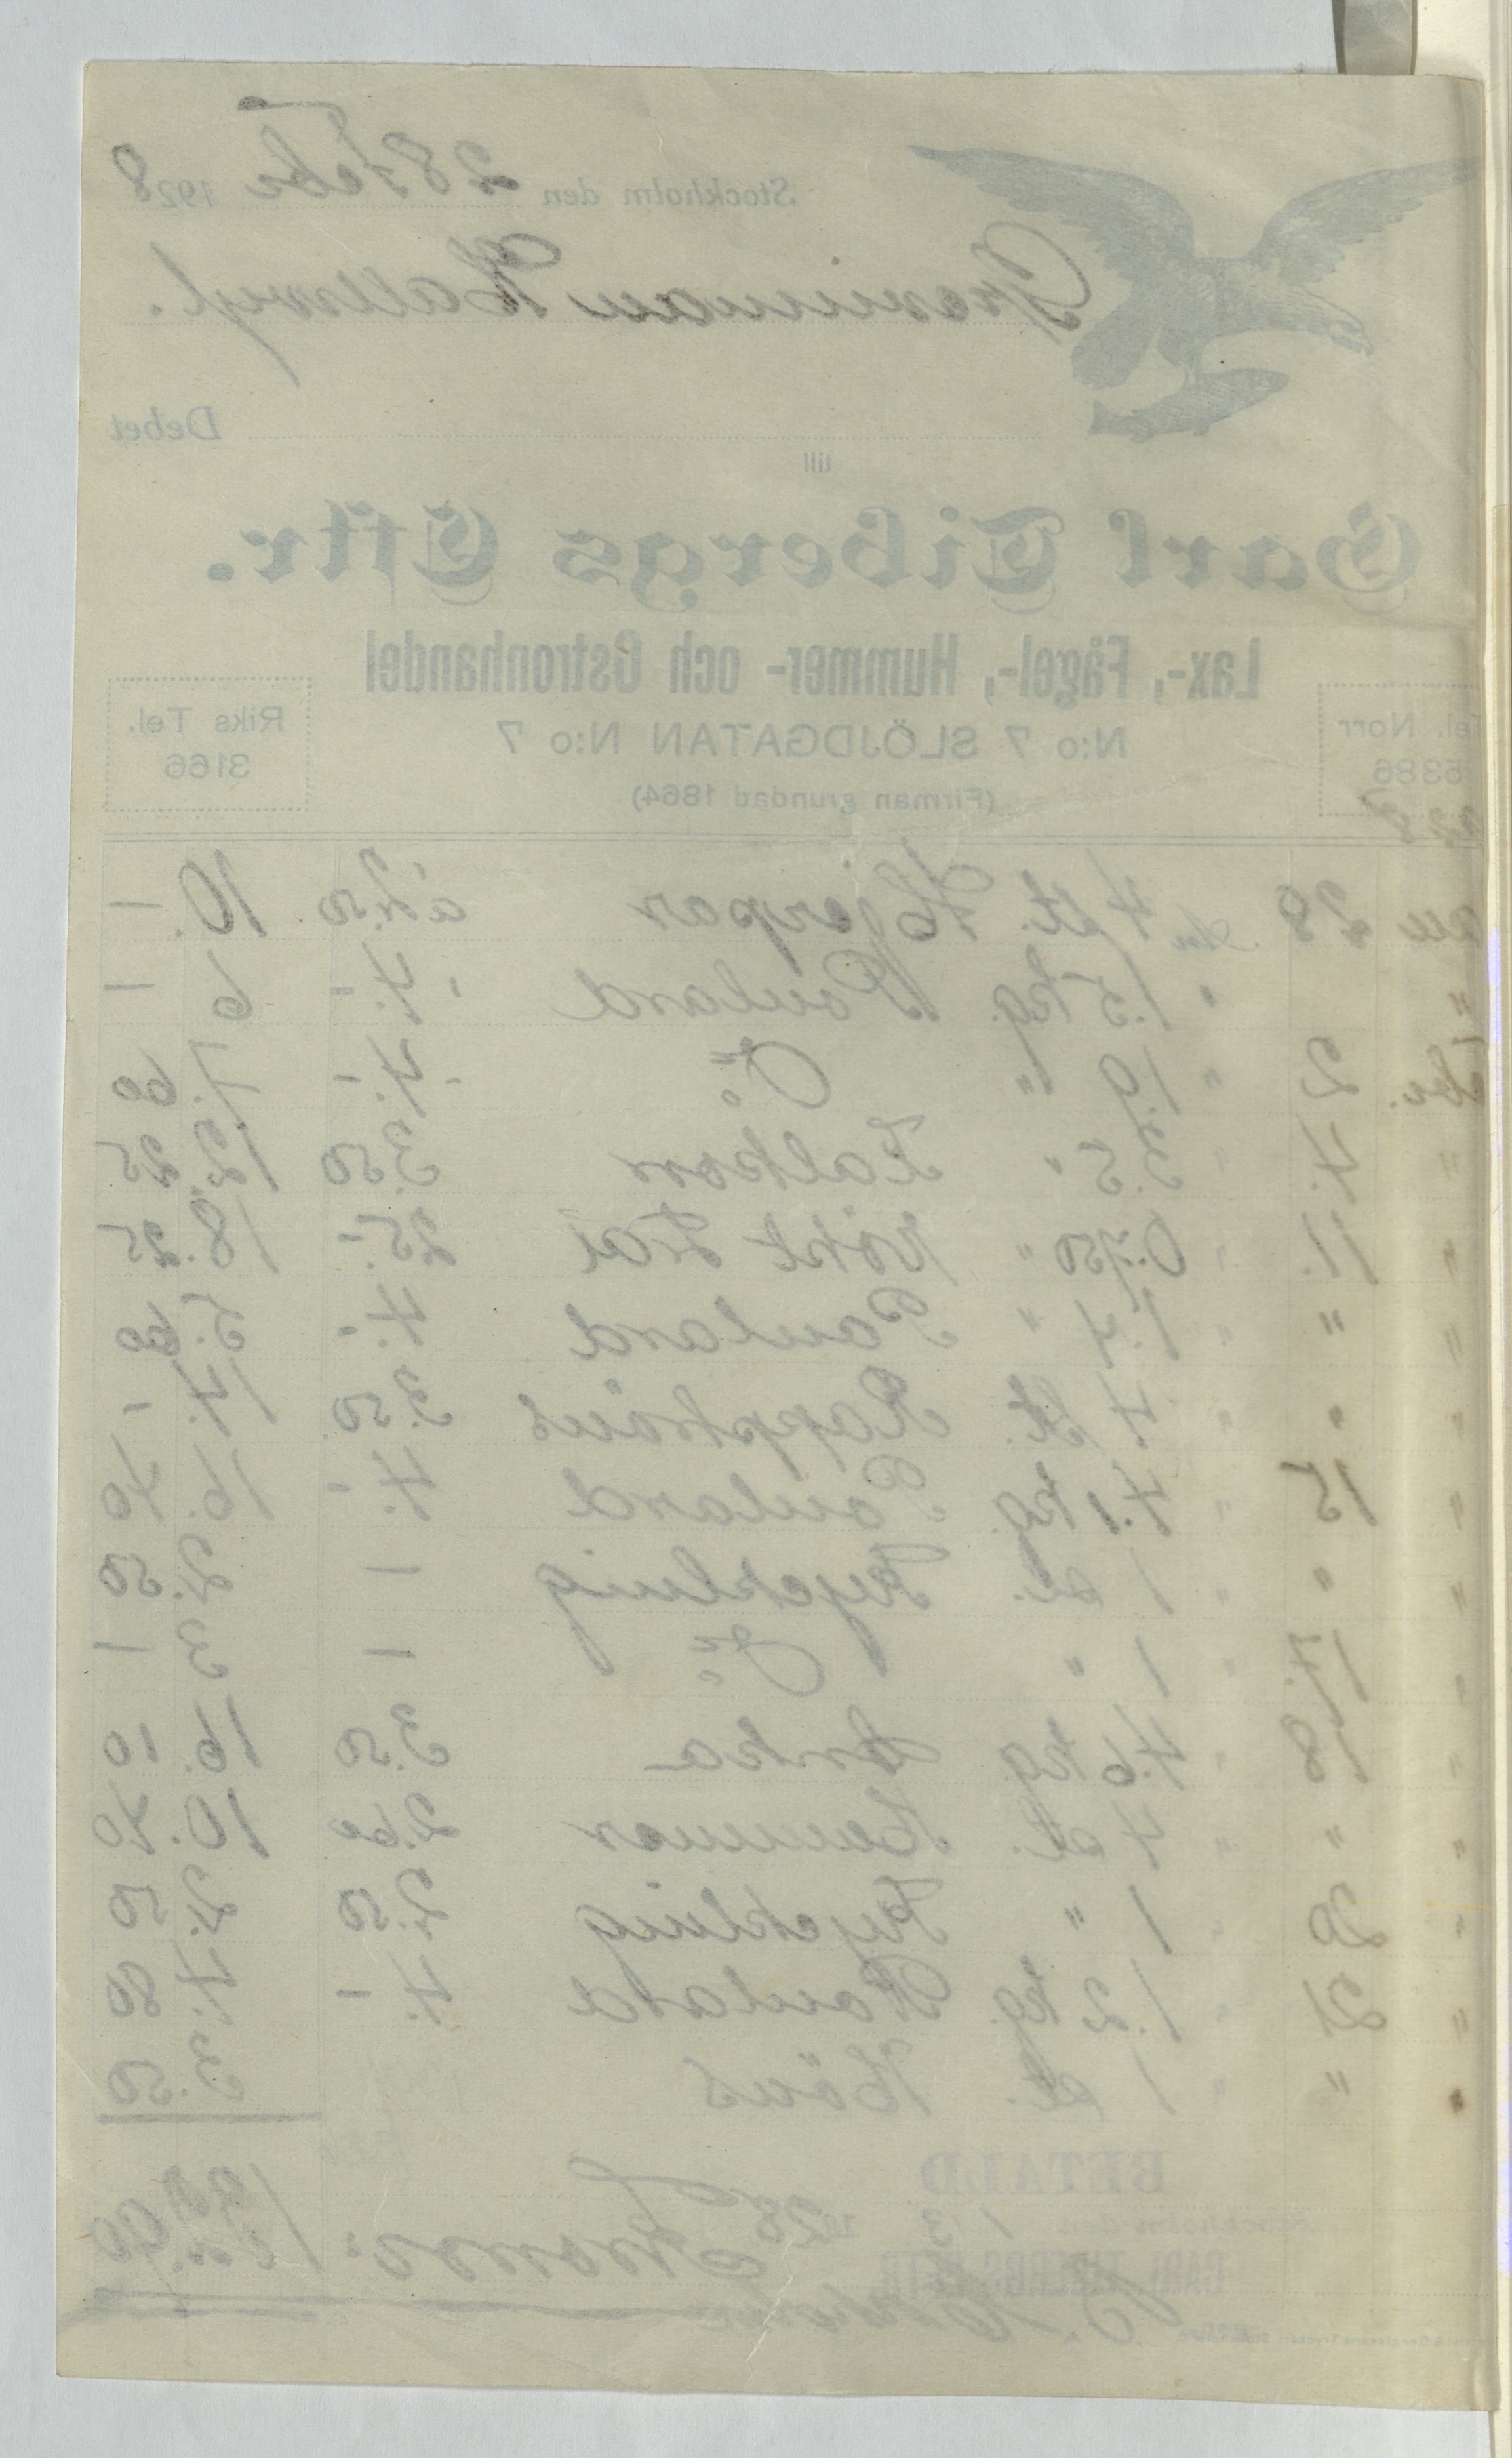 Stockholm den 28 Febr 1928
Grevinnan Hallwyl.
Debet
till
Carl Tibergs Eftr.
Lax-, Fågel-, Hummer- och Ostronhandel
Tel. Norr 5386
N:o 7 SLÖJDGATAN N:o 7
Riks Tel. 3166
(Firman grundad 1864)
28 4 st. Hjerpar à 2.50 10. –
" 1.5 kg. Poulard - 4.- 6 –
2 " 1.9 " Do - 4.- 7.60
" 4. " 3.5 " Kalkon 3.50 12.25
" 11. " 0.730 " rökt Lax 25.- 18.25
" " " 1.4 " Poulard 4.- 5.60
" " " 4 st. Rapphöns 3.50 14. -
" 15 " 4.1 kg. Poulard 4.- 16.40
" " " 1 st. Kyckling – 2.50
" 17. " 1 " Do – 3 –
" 18 " 4.6 kg. Anka 3.50 16.10
" " " 4 st. Hummer 2.60 10.40
" 20 " 1 " Kyckling 2.50 2.50
" 21 " 1.2 kg. Poulard 4.- 4.80
" " " 1 st. Höns 3.50
BETALD
Stockholm den 1/3 1928
Kronor:
CARL TIBERGS EFTR.